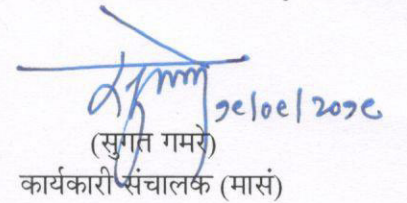 १८/०८/२०१८
(सुगत गमरे)
कार्यकारी संचालक (मासं)